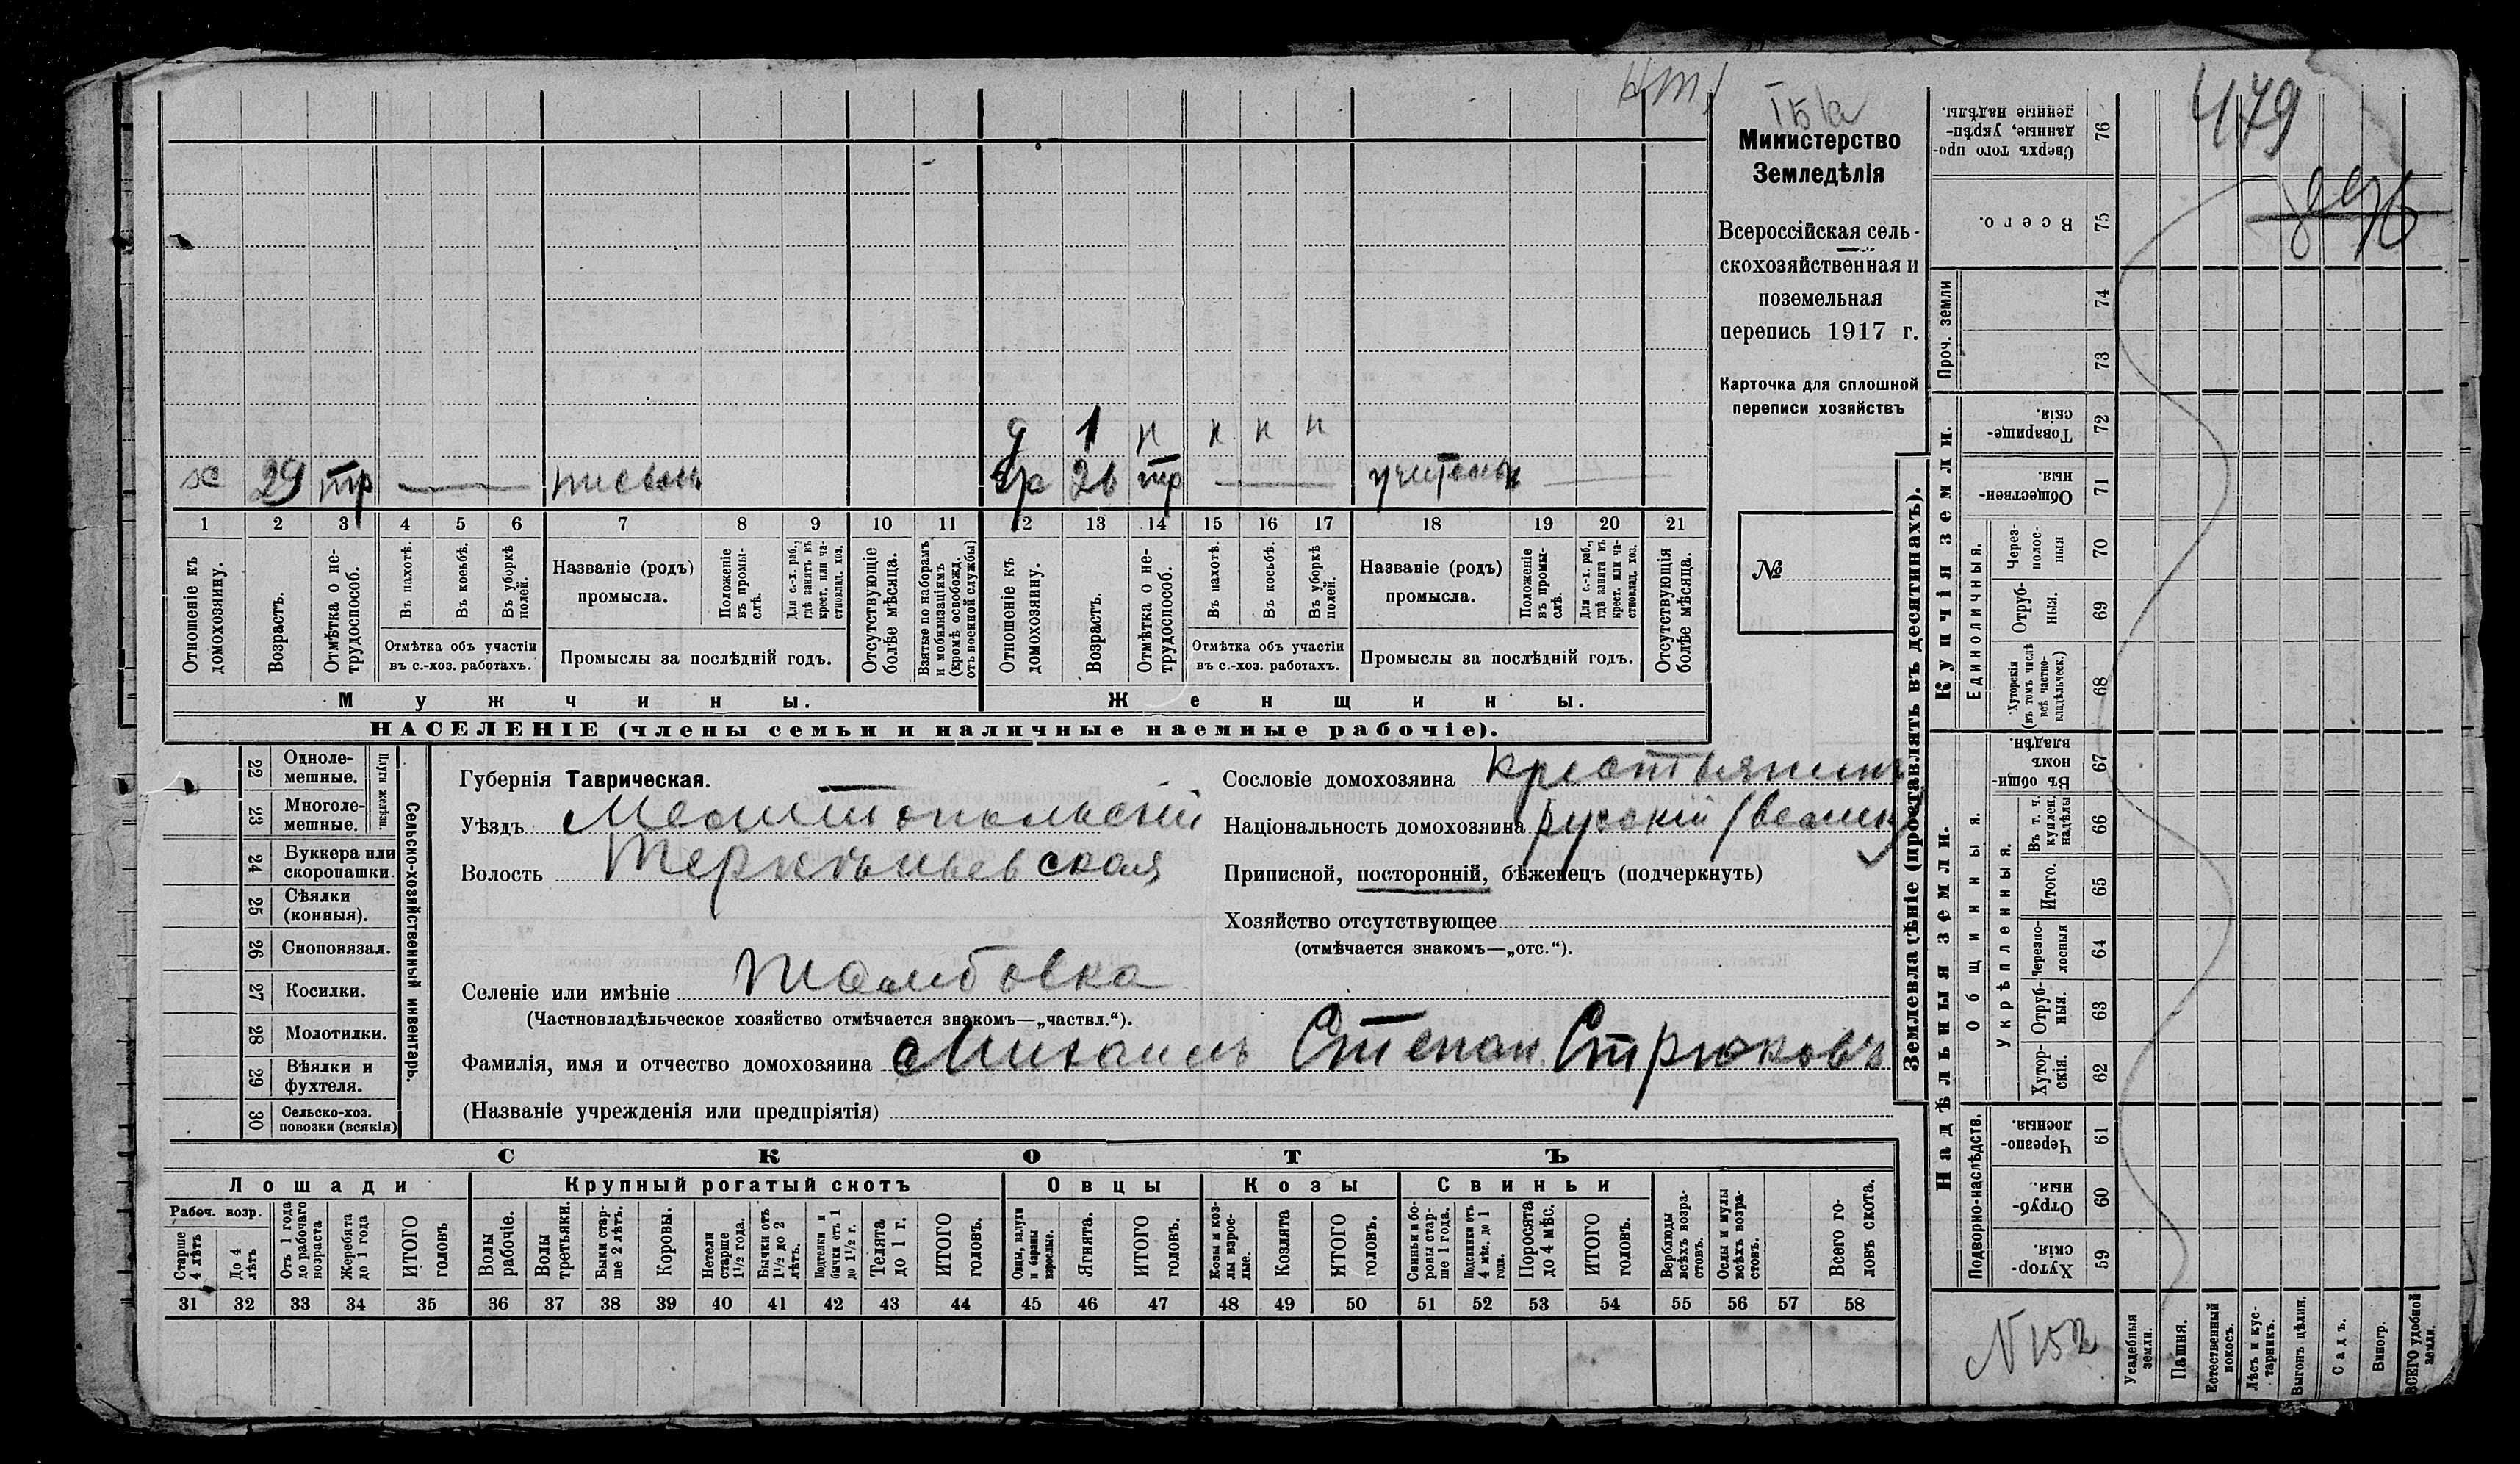 Министерство
Земледѣлія
Всероссійская сель-
скохозяйственная и
поземельная
перепись 1917 г.
Карточка для сплошной
переписи хозяйствъ
№
479
х 29 тр
д 1 н н н н
26 тр
1 2 3 4 5 6 7 8 9 10 11 12 13 14 15 16 17 18 19 20 21
Отношеніе къ домохозяину.
Возрастъ.
Отмѣтка о не-
трудоспособ.
Въ пахотѣ.
Въ косьбѣ.
Въ уборкѣ полей.
Отмѣтка объ участіи
въ с.-хоз. работахъ.
Названіе (родъ)
промысла.
Положеніе
въ промы-
слѣ.
Для с.-х. раб.,
гдѣ занятъ въ
крест. или ча-
стновлад. хоз.
Промыслы за послѣдній годъ.
Отсутствующіе
болѣе мѣсяца.
Взятые по наборамъ
и мобилизаціямъ
(кромѣ освобожд.
отъ военной службы)
Отношеніе къ
домохозяину.
Возрастъ.
Отмѣтка о не-
трудоспособ.
Въ пахотѣ.
Въ косьбѣ.
Въ уборкѣ
полей.
Отмѣтка объ участіи
въ с.-хоз. работахъ.
Названіе (родъ)
промысла.
Положеніе
въ промы-
слѣ.
Для с.-х. раб.,
гдѣ занята въ
крест. или ча-
стновлад. хоз.
Промыслы за послѣдній годъ.
Отсутствующія
болѣе мѣсяца.
Мужчины.
Женщины.
НАСЕЛЕНІЕ (члены семьи и наличные наемные рабочіе).
22 Одноле-
мешные.
23 Многоле-
мешные.
Плуги желѣзн.
24 Буккера или
скоропашки.
25 Сѣялки
(конныя).
26 Сноповязал.
27 Косилки.
28 Молотилки.
29 Вѣялки и
фухтеля.
30 Сельско-хоз.
повозки (всякія)
Сельско-хозяйственный инвентарь.
Губернія Таврическая.
Уѣздъ Мелитопольскій
Волость
Селеніе или имѣніе Тамбовка
(Частновладѣльческое хозяйство отмѣчается знакомъ—„частвл.“).
Фамилія, имя и отчество домохозяина Михаилъ Степан. Стрюковъ
(Названіе учрежденія или предпріятія)
Сословіе домохозяина крестьянинъ
Національность домохозяина русскій
Приписной, посторонній, бѣженецъ (подчеркнуть)
Хозяйство отсутствующее
(отмѣчается знакомъ—„отс.“).
СКОТЪ
Лошади
Крупный рогатый скотъ
Овцы
Козы
Свиньи
Рабоч. возр.
Старше
4 лѣтъ
До 4
лѣтъ
Отъ 1 года
до рабочаго
возраста
Жеребята
до 1 года
ИТОГО
головъ
Волы
рабочіе.
Волы
третьяки.
Быки стар-
ше 2 лѣтъ.
Коровы.
Нетели
старше
1½ года.
Бычки отъ
1½ до 2
лѣтъ.
Подтелки и
бычки отъ 1
до 1½ г.
Телята
до 1 г.
ИТОГО
головъ.
Овцы, валухи
и бараны
взрослые.
Ягнята.
ИТОГО
головъ.
Козы и коз-
лы взрос-
лые.
Козлята
ИТОГО
головъ.
Свиньи и бо-
ровы стар-
ше 1 года.
Подсвинки отъ
4 мѣс. до 1
года.
Поросята
до 4 мѣс.
ИТОГО
головъ.
Верблюды
всѣхъ возра-
стовъ.
Ослы и мулы
всѣхъ возра-
стовъ.
Всего го-
ловъ скота.
31 32 33 34 35 36 37 38 39 40 41 42 43 44 45 46 47 48 49 50 51 52 53 54 55 56 57 58
Землевладѣніе (проставлять въ десятинахъ).
Купчія земли.
Проч. земли
Единоличныя.
Надѣльныя земли.
Общинныя.
Укрѣпленныя.
Подворно-наслѣдств.
Сверхъ того про-
даннные, укрѣп-
ленные надѣлы. 76
Всего. 75
74
73
Товарище-
скія. 72
Обществен-
ныя. 71
Через-
полос-
ныя 70
Отруб-
ныя. 69
Хуторскія
(въ томъ числѣ
всѣ частно-
владѣльческ.) 68
Въ общин-
номъ
владѣн. 67
Въ т. ч.
куплен.
надѣлы 66
Итого. 65
Черезпо-
лосныя 64
Отруб-
ныя. 63
Хутор-
скія. 62
Черезпо-
лосныя. 61
Отруб-
ныя. 60
Хутор-
скія. 59
N 152
Усадебныя
земли.
Пашня.
Естественный
покосъ.
Лѣсъ и кус-
тарникъ.
Выгонъ цѣлин.
Садъ.
Виногр.
ВСЕГО удобной
земли.